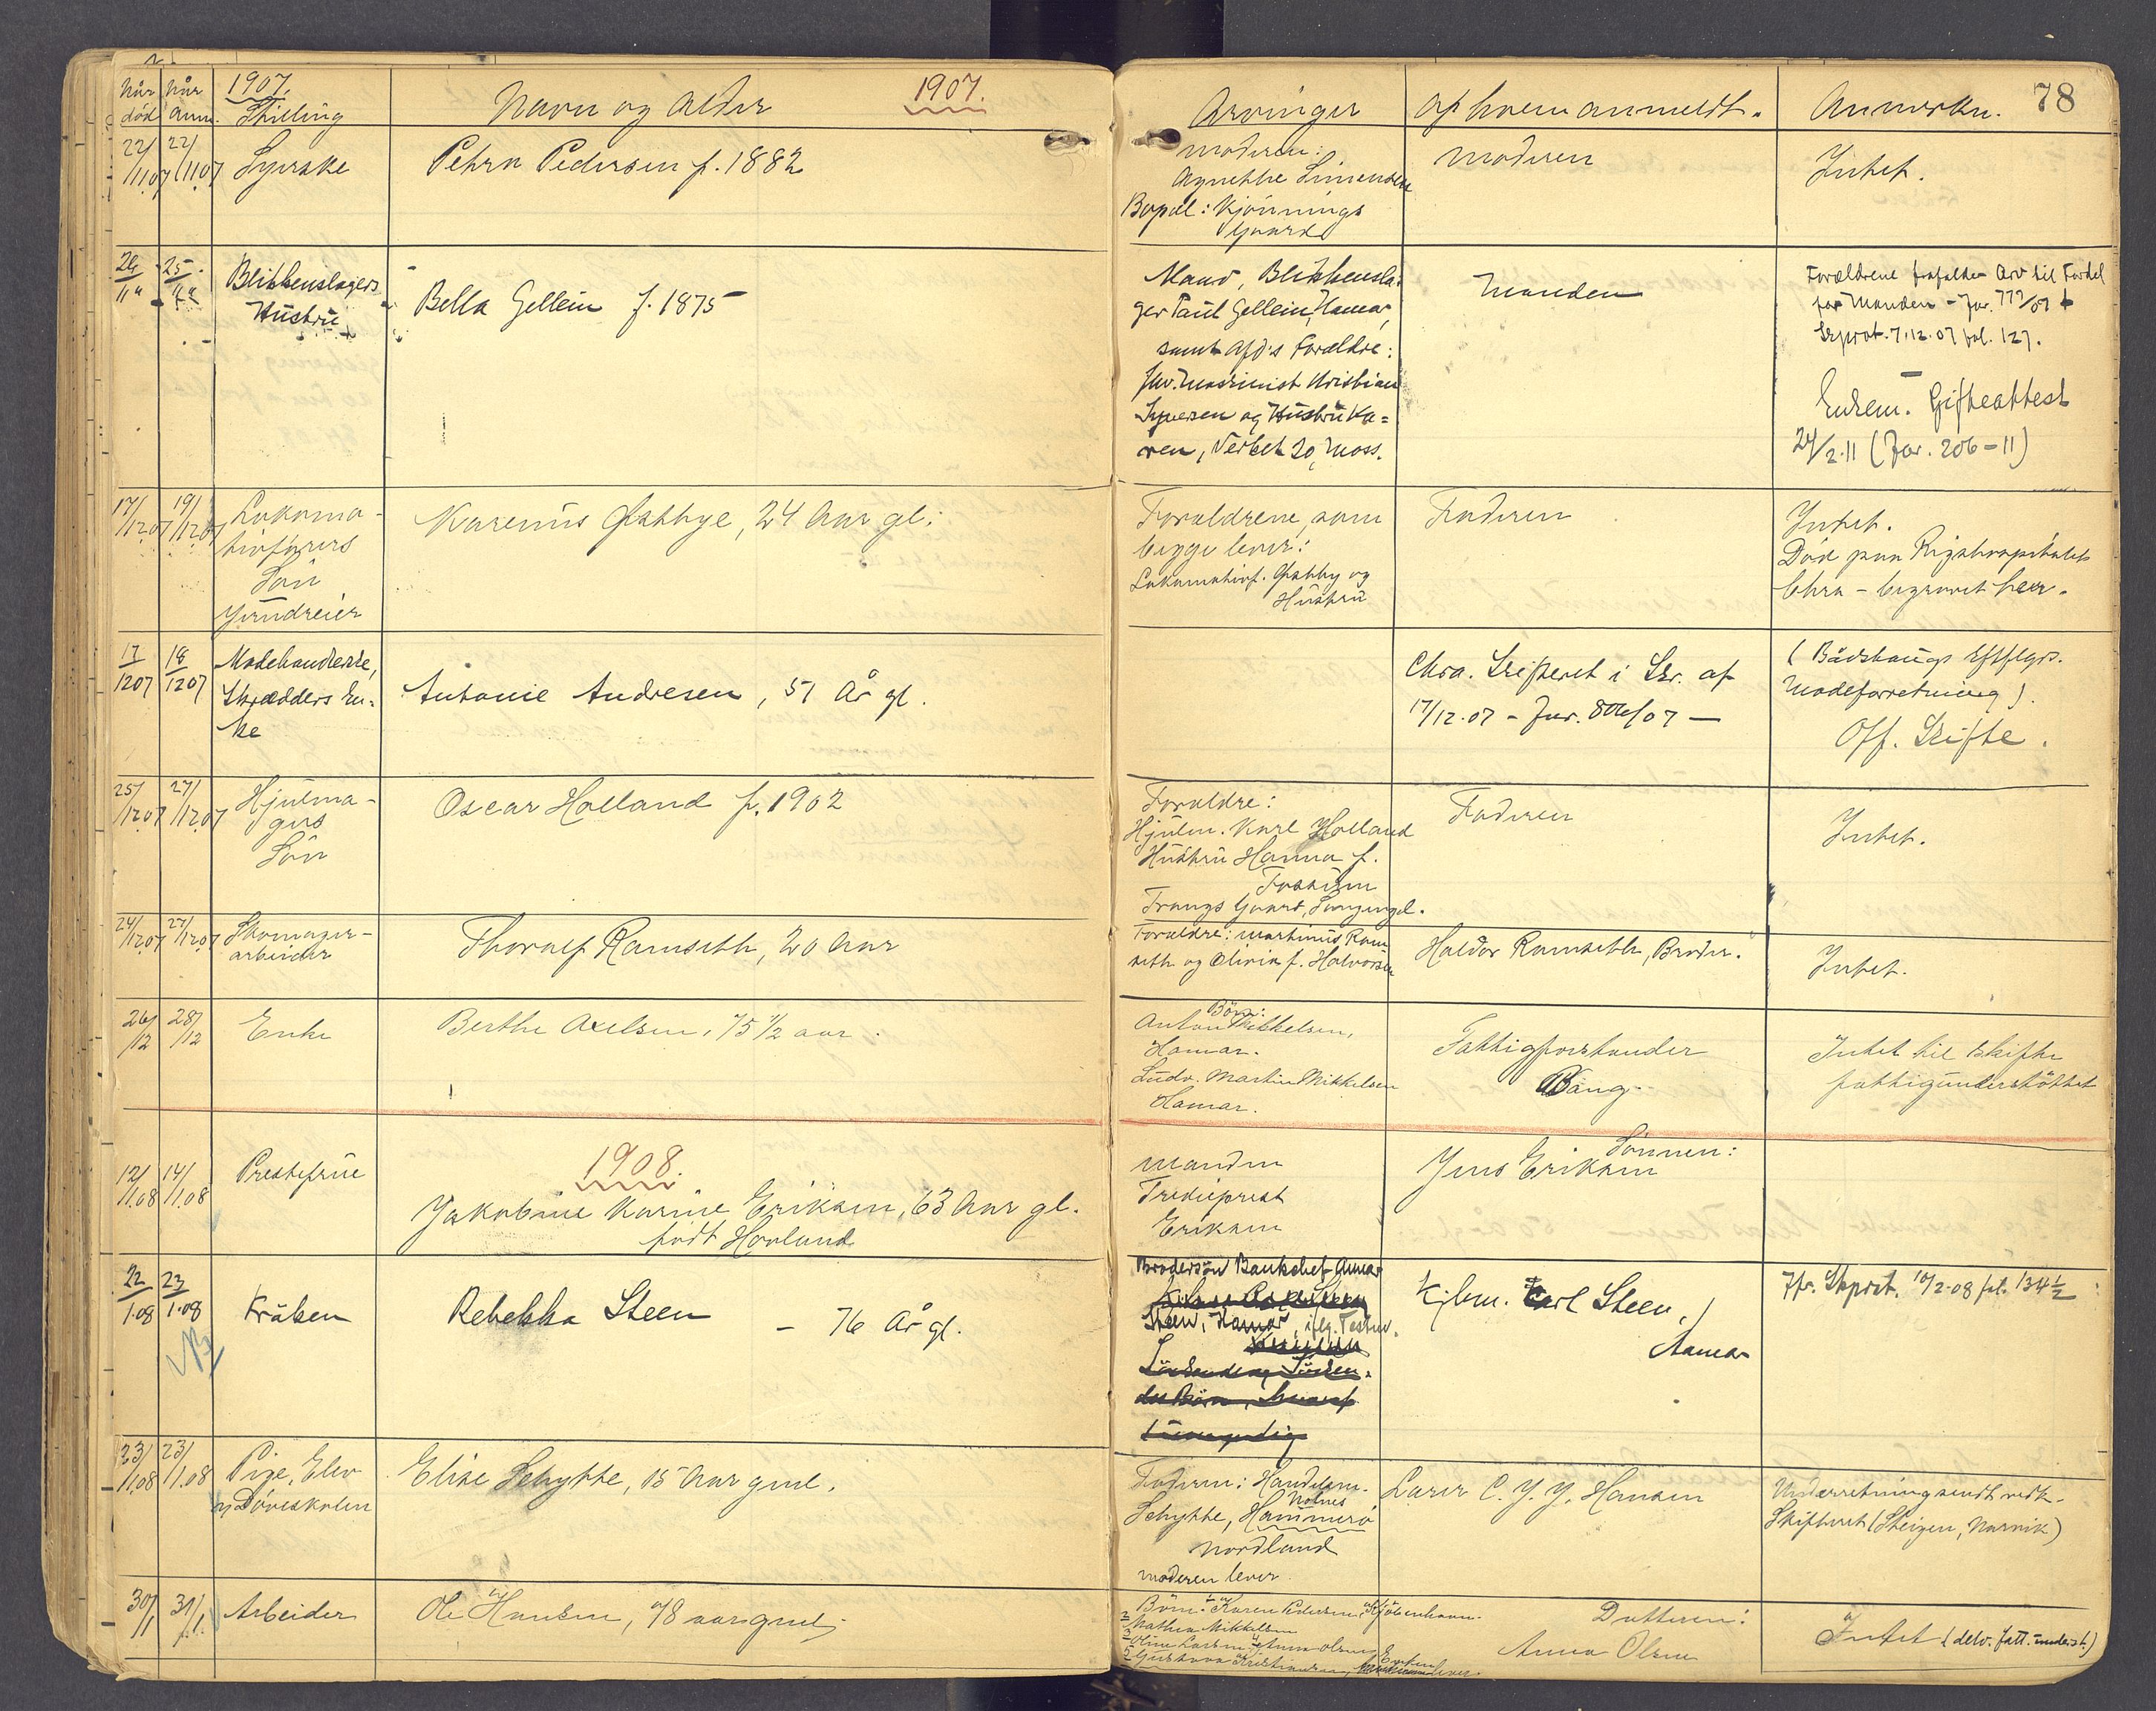 78
1907.
når død
når anm.
Stilling
Navn og Alder
1907.
Arvinger
af hvem anmeldt.
Anmerkn.
22/1107
22/1107
Syerske
Petra Pedersen f. 1882
Moderen:
Agnethe Simensen
Bopæl: Kjønnings
Gaard
Moderen
Intet.
24/11 "
25/11 "
Blikkenslagers
Hustru
Bella Gellein f. 1875
Mand, Blikkensla-
ger Paul Gellein, Hamar,
samt afd's Forældre:
fhv. Maskinist Kristian
Syversen og Hustru Ka=
ren, Verket 20, Moss.
Manden
Forældrene frafalder Arv til Fordel
for Manden - Jur. 779/07
Skprot. 7.12.07 fol. 127.
Enkem. Gifteattest
24/2.11 (Jur. 206-11)
17/1207
19/1207
Lokomo-
tivførers
Søn
Jerndreier
Karenus Østbye, 24 Aar gl:
Forældrene, som
begge lever:
Lokomotivf. Østby og
Hustru
Faderen
Intet.
Død paa Rigshospitalet
Chra - begravet her.
17/1207
18/1207
Modehandlerske,
Skrædders En-
ke
Antonie Andresen, 51 År gl.
Chra. Skifteret i Skr. af
17/12.07 - Jur. /07 —
(Bådshaugs Eftflgrs.
Modeforretning).
Off. Skifte.
25/1207
27/1207
Hjulma-
gers
Søn
Oscar Holland f. 1902
Forældre:
Hjulm. Karl Holland
Hustru Hanna f.
Frangs Gaard, Grønnegd.
Faderen
Intet.
24/1207
27/1207
Skomager-
arbeider
Thoralf Ramseth, 20 Aar
Forældre: Martinus Ram-
seth og Olivia f. Halvorsen
Haldor Ramseth, Broder.
Intet.
26/12
28/12
Enke
Berthe Axelsen, 75 1/2 aar.
Børn:
Anton Mikkelsen,
Hamar.
Ludv. Martin Mikkelsen
Hamar.
Fattigforstander
Bang
Intet til skifte
fattigunderstøttet
1908.
12/1.08
14/1.08
Prestefrue
Jakobine Karine Eriksen, 63 Aar gl.
født Hovland
Manden
Trediprest
Eriksen
Sønnen:
Jens Eriksen
22/1.08
23/1.08
Frøken
Rebekka Steen - 76 År gl.
Brodersøn Bankchef Aamar
Steen, Hamar, iflg. Testm.
Kjbm. Carl Steen,
Hamar
Jfr. Skprot. 10/2-08 fol. 134 1/2
23/1.08
23/1.08
Pige, Elev
v/ Døveskolen
Elise Schytte, 15 Aar gml.
Faderen: Handelsm.
Schytte, Holmes
Hammerø
Nordland
Moderen lever.
Lærer C. J. J. Hansen
Underretning sendt vedk.
Skifteret (Steigen, Narvik)
30/1
31/1.
Arbeider
Ole Hansen, 78 aar gml.
Børn: 1 Karen Pedersen, Kjøbenhavn.
2 Mathea Mikkelsen
3 Oline Larsen 4 Anna Olsen
5 Gustava Kristiansen, Enken lever.
Datteren:
Anna Olsen
Intet (delv. fatt. underst.)